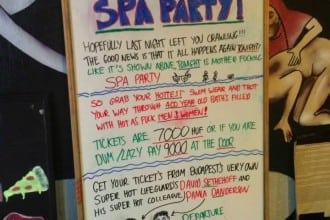 SPA PARTY!
HOPEFULLY LAST NIGHT LEFT YOU CRAWLING!!!
THE GOOD NEWS IS THAT IT ALL HAPPENS AGAIN TONIGHT!
LIKE IT'S SHOWN ABOVE, TONIGHT IS MOTHER FUCKING
SPA PARTY
SO GRAB YOUR HOTTEST SWIM WEAR AND TROT
YOUR WAY THROUGH 400 YEAR OLD BATHS FILLED
WITH HOT AS FUCK MEN & WOMEN!
TICKETS ARE 7000 HUF OR IF YOU ARE
DUM/LAZY PAY 9000 AT THE DOOR
GET YOUR TICKET'S FROM BUDAPEST'S VERY OWN
SUPER HOT LIFEGUARDS DAVID SETHEHOFF AND
HIS SUPER HOT COLLEAGUE PAMLA DANDERSON
DEPARTURE